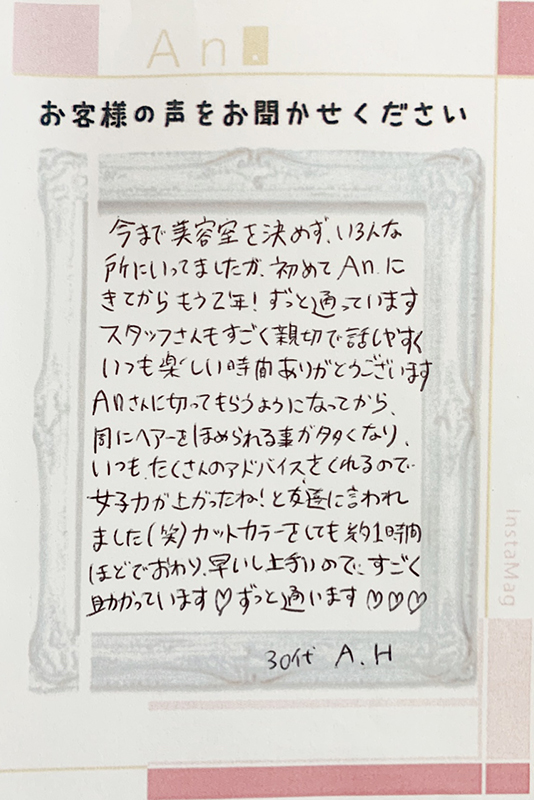 An.
お客様の声をお聞かせください
今まで美容室を決めず、いろんな
所にいってましたが、初めてAn.に
きてからもう2年！ずっと通っています
スタッフさんもすごく親切で話しやすく
いつも楽しい時間ありがとうございます
Anさんに切ってもらうようになってから、
周にヘアーをほめられる事が多くなり、
いつも、たくさんのアドバイスをくれるので
女子力が上がったね！と友達に言われ
ました(笑)カットカラーをしても約1時間
ほどでおわり、早いし上手いので、すごく
助かっています♡ずっと通います♡♡♡
30代 A.H
InstaMag